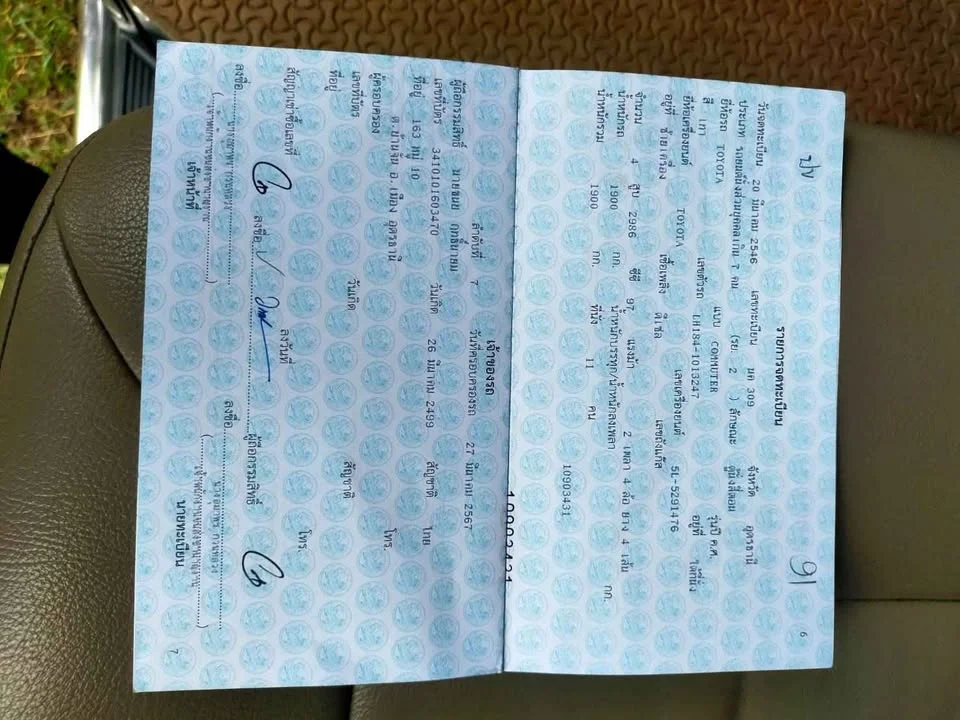 6
91
รายการจดทะเบียน
วันจดทะเบียน 20 มีนาคม 2546 เลขทะเบียน นค 309 จังหวัด อุดรธานี
ประเภท รถยนต์นั่งส่วนบุคคลเกิน 7 คน (รย. 2 ) ลักษณะ ตู้นั่งสี่ตอน
ยี่ห้อรถ TOYOTA แบบ COMMUTER รุ่นปี ค.ศ.
สี เทา เลขตัวรถ LH184-1013247 อยู่ที่ ใต้ที่นั่ง
ยี่ห้อเครื่องยนต์ TOYOTA เลขเครื่องยนต์ 5L-5291476
อยู่ที่ ซ้ายเครื่อง เชื้อเพลิง ดีเซล เลขถังแก๊ส
จำนวน 4 สูบ 2986 ซีซี 97 แรงม้า 2 เพลา 4 ล้อ ยาง 4 เส้น
น้ำหนักรถ 1900 กก. น้ำหนักบรรทุก/น้ำหนักลงเพลา กก.
น้ำหนักรวม 1900 กก. ที่นั่ง 11 คน
10903431
เจ้าของรถ
ลำดับที่ 7 วันที่ครอบครองรถ 27 มีนาคม 2567
ผู้ถือกรรมสิทธิ์
เลขที่บัตร 3410101603470 วันเกิด 26 มีนาคม 2499 สัญชาติ ไทย
ที่อยู่ 163 หมู่ 10
อ.เมือง อุดรธานี โทร.
ผู้ครอบครอง
เลขที่บัตร วันเกิด สัญชาติ
ที่อยู่ โทร.
สัญญาเช่าซื้อเลขที่ ลงวันที่
ลงชื่อ ผู้ถือกรรมสิทธิ์
ลงชื่อ ลงชื่อ
เจ้าหน้าที่ นายทะเบียน
7